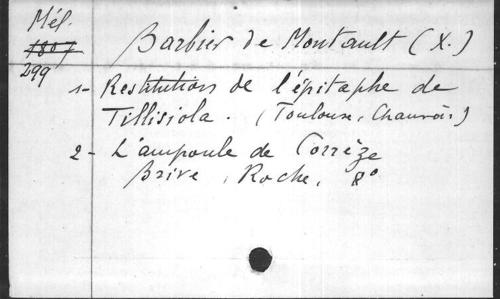 Mél.
1807
299
Barbier de Montault (X.)
1- Restitution de l'épitaphe de
Tillisiola. (Toulouse, Chauvin)
2- L'ampoule de Corrèze
Brive, Roche, 8°